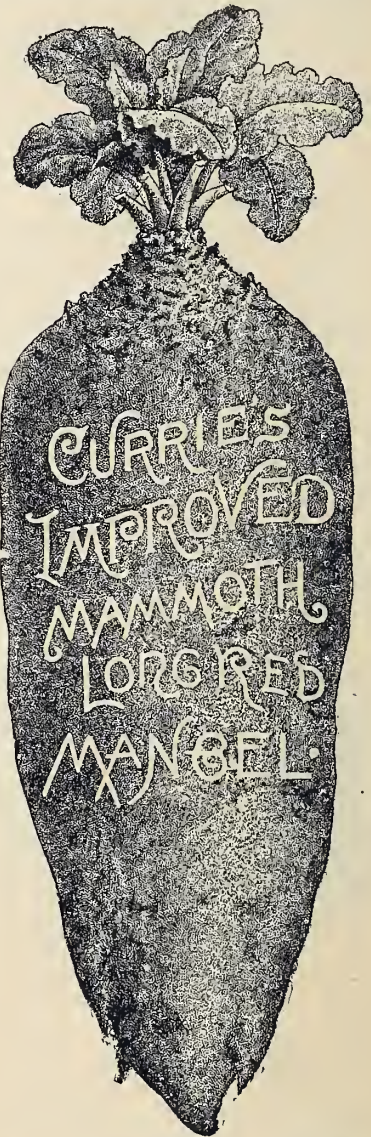 CURRIE'S
IMPROVED
MAMMOTH
LONG RED
MANGEL.